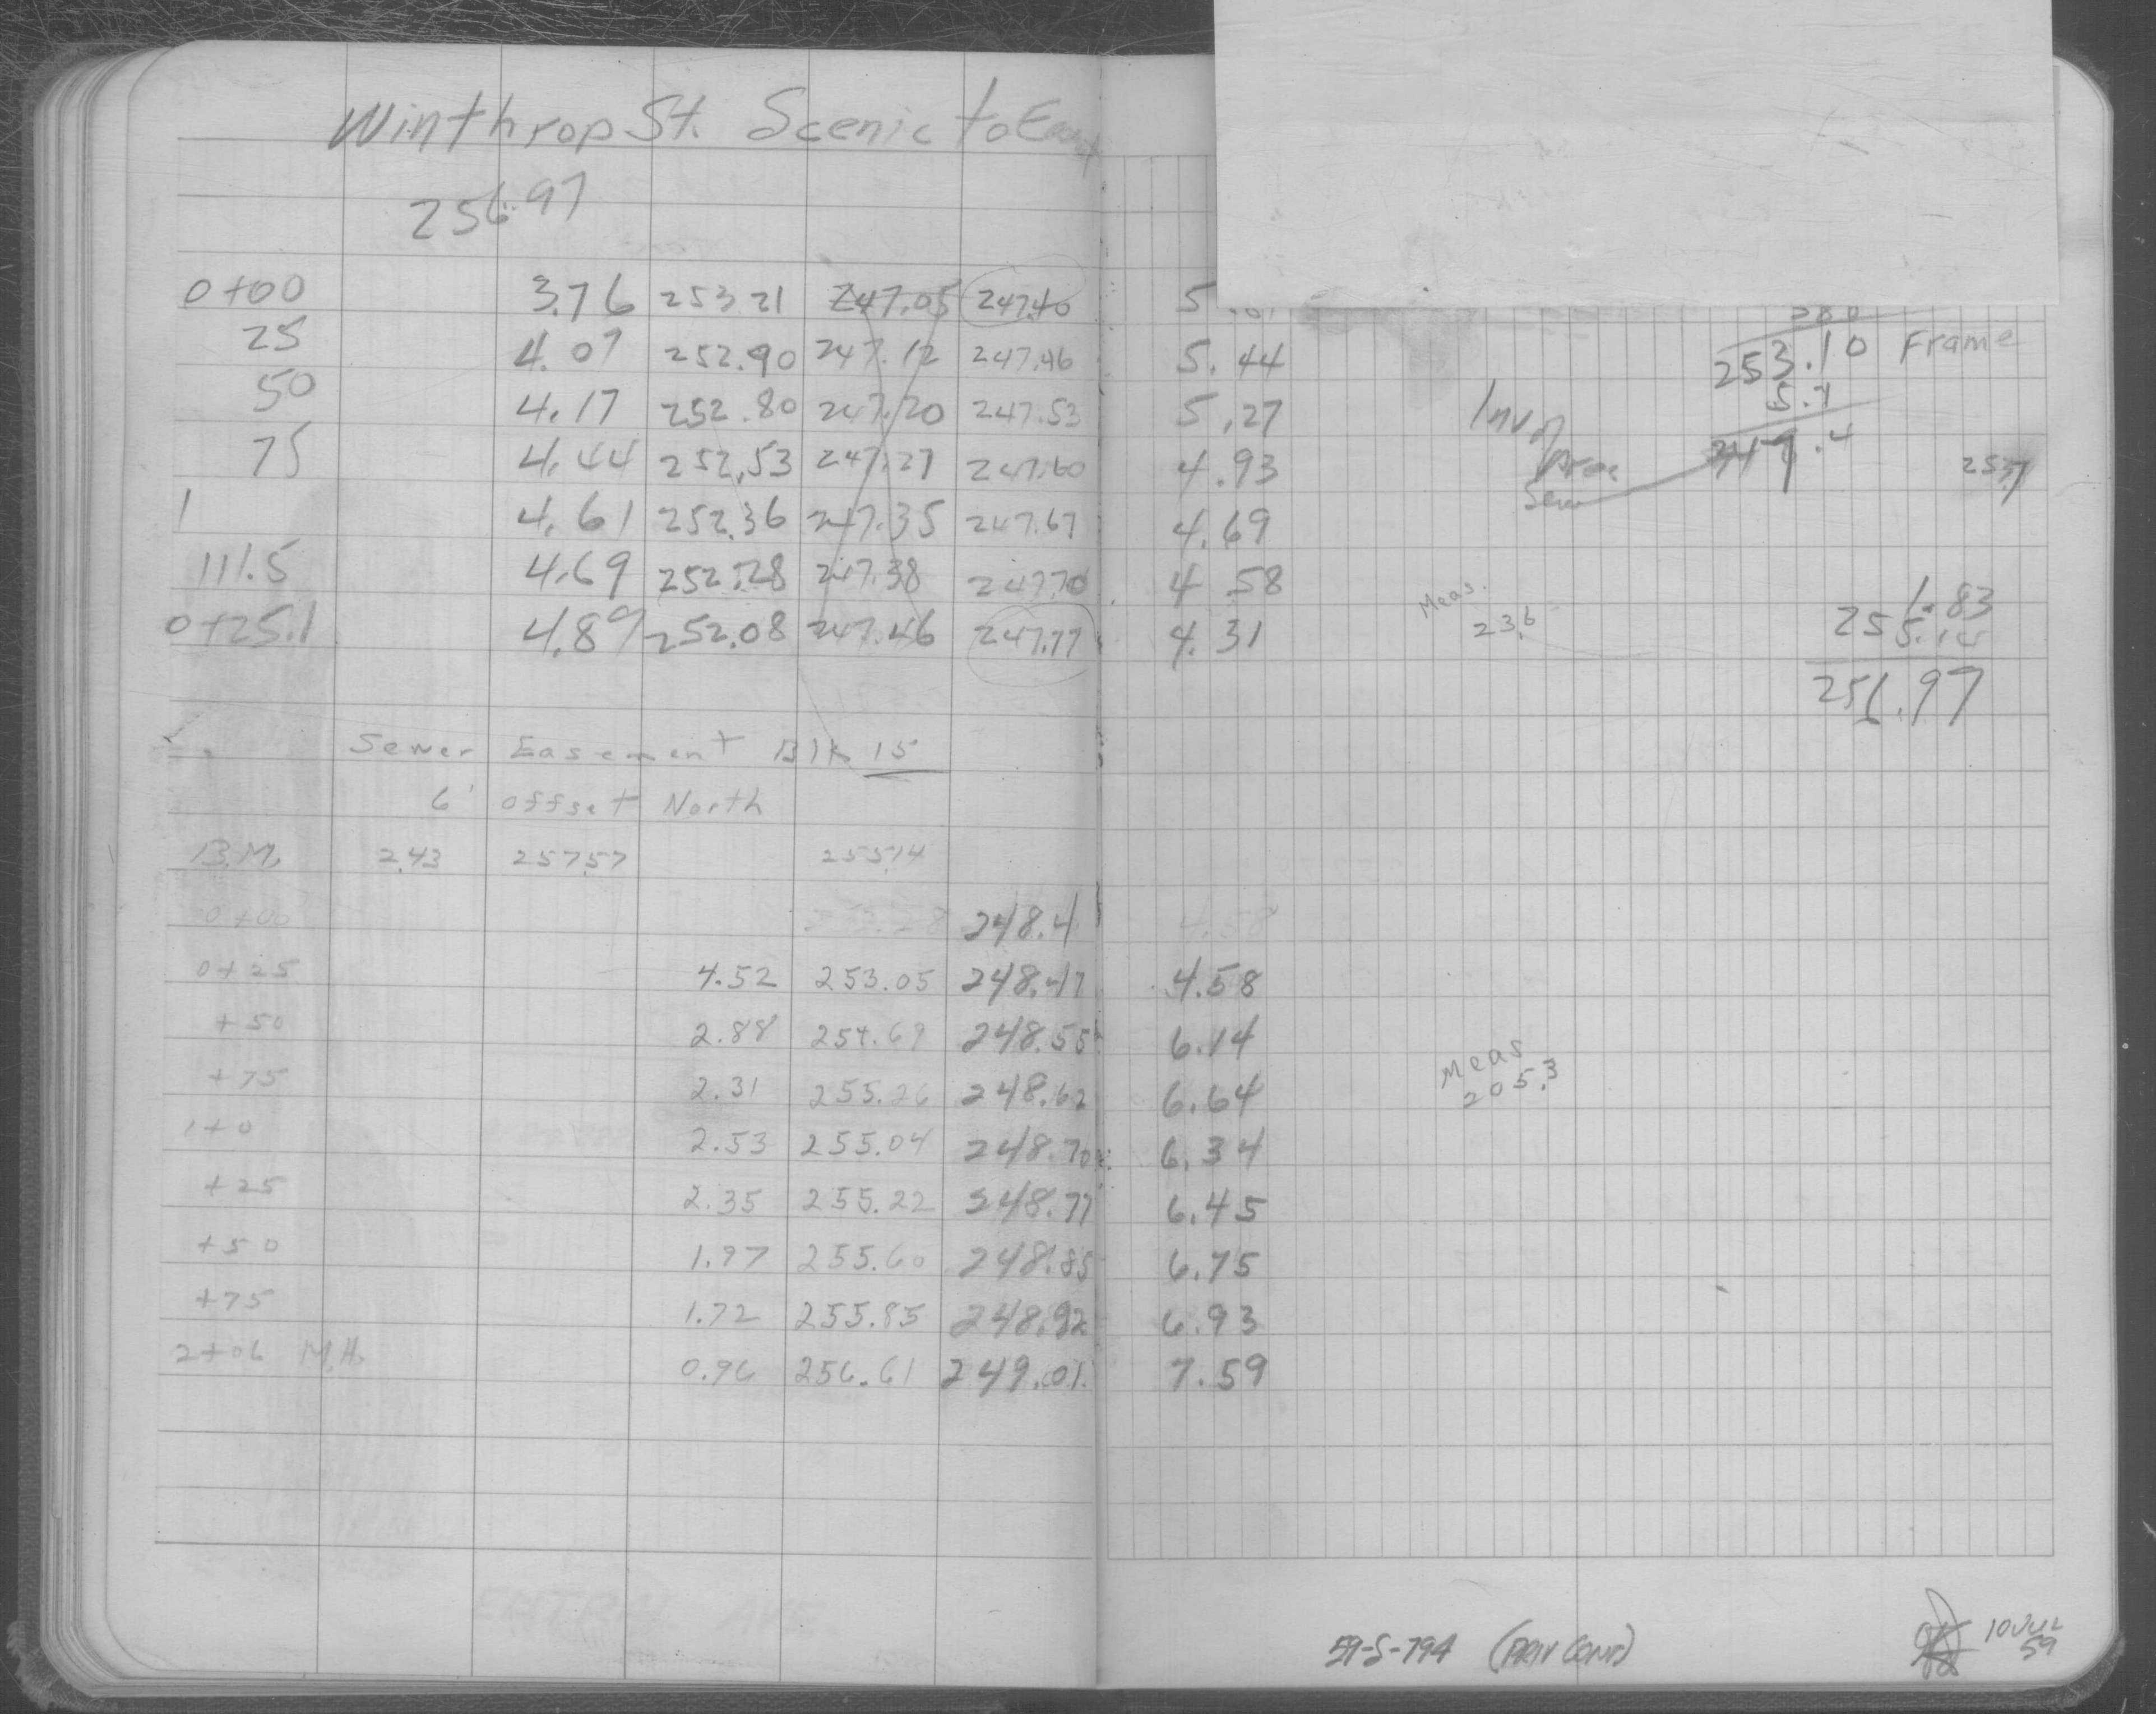 Winthrop St. Scenic to
256.97
0+00 3.76 253.21 247.05 247.40 5
25 4.07 252.90 247.12 247.46 5.44
50 4.17 252.80 247.20 247.53 5.27
75 4.44 252.53 247.27 247.60 4.93
1 4.61 252.36 247.35 247.67 4.69
111.5 4.69 252.28 247.38 247.70 4.58
0+25.1 4.89 252.08 247.46 247.77 4.31
Sewer Easement Blk 15
6' offset North
B.M. 2.43 257.57 255.14
0+00 248.4 4.58
0+25 4.52 253.05 248.47 4.58
+50 2.88 254.69 248.55 6.14
+75 2.31 255.26 248.62 6.64
1+0 2.53 255.04 248.70 6.34
+25 2.35 255.22 248.77 6.45
+50 1.97 255.60 248.85 6.75
+75 1.72 255.85 248.92 6.93
2+06 M.H. 0.96 256.61 249.01 7.59
253.10 Frame
5.7
Inv of
247.4
Meas.
23.6
1.83
255.14
256.97
Meas
205.3
59-S-794 (PRIV CONT)
10 JUL
59